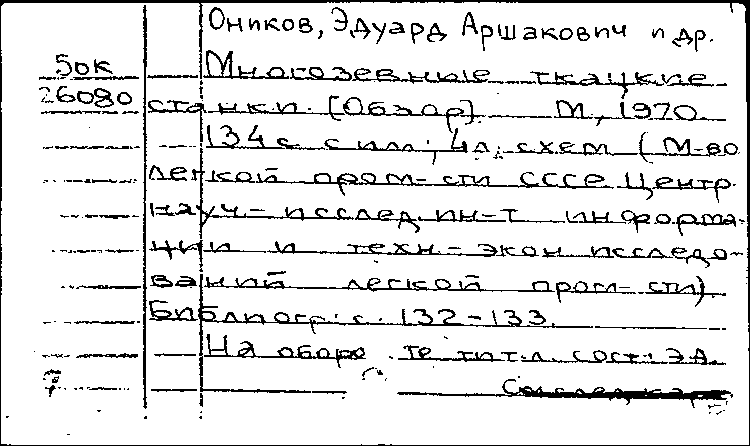 Оников, Эдуард Аршакович и др.
50к Многозевные ткацкие
26080 станки. [Обзор] М., 1970.
134 с. с ил.; 4 л. схем (М-во
легкой пром-сти СССР Центр.
науч.-исслед. ин-т информа-
ции и техн.-экон. исследо-
ваний легкой пром-сти).
Библиогр.: с. 132-133.
На оборо те тит. л. сост.: Э.А.
См. след. кар